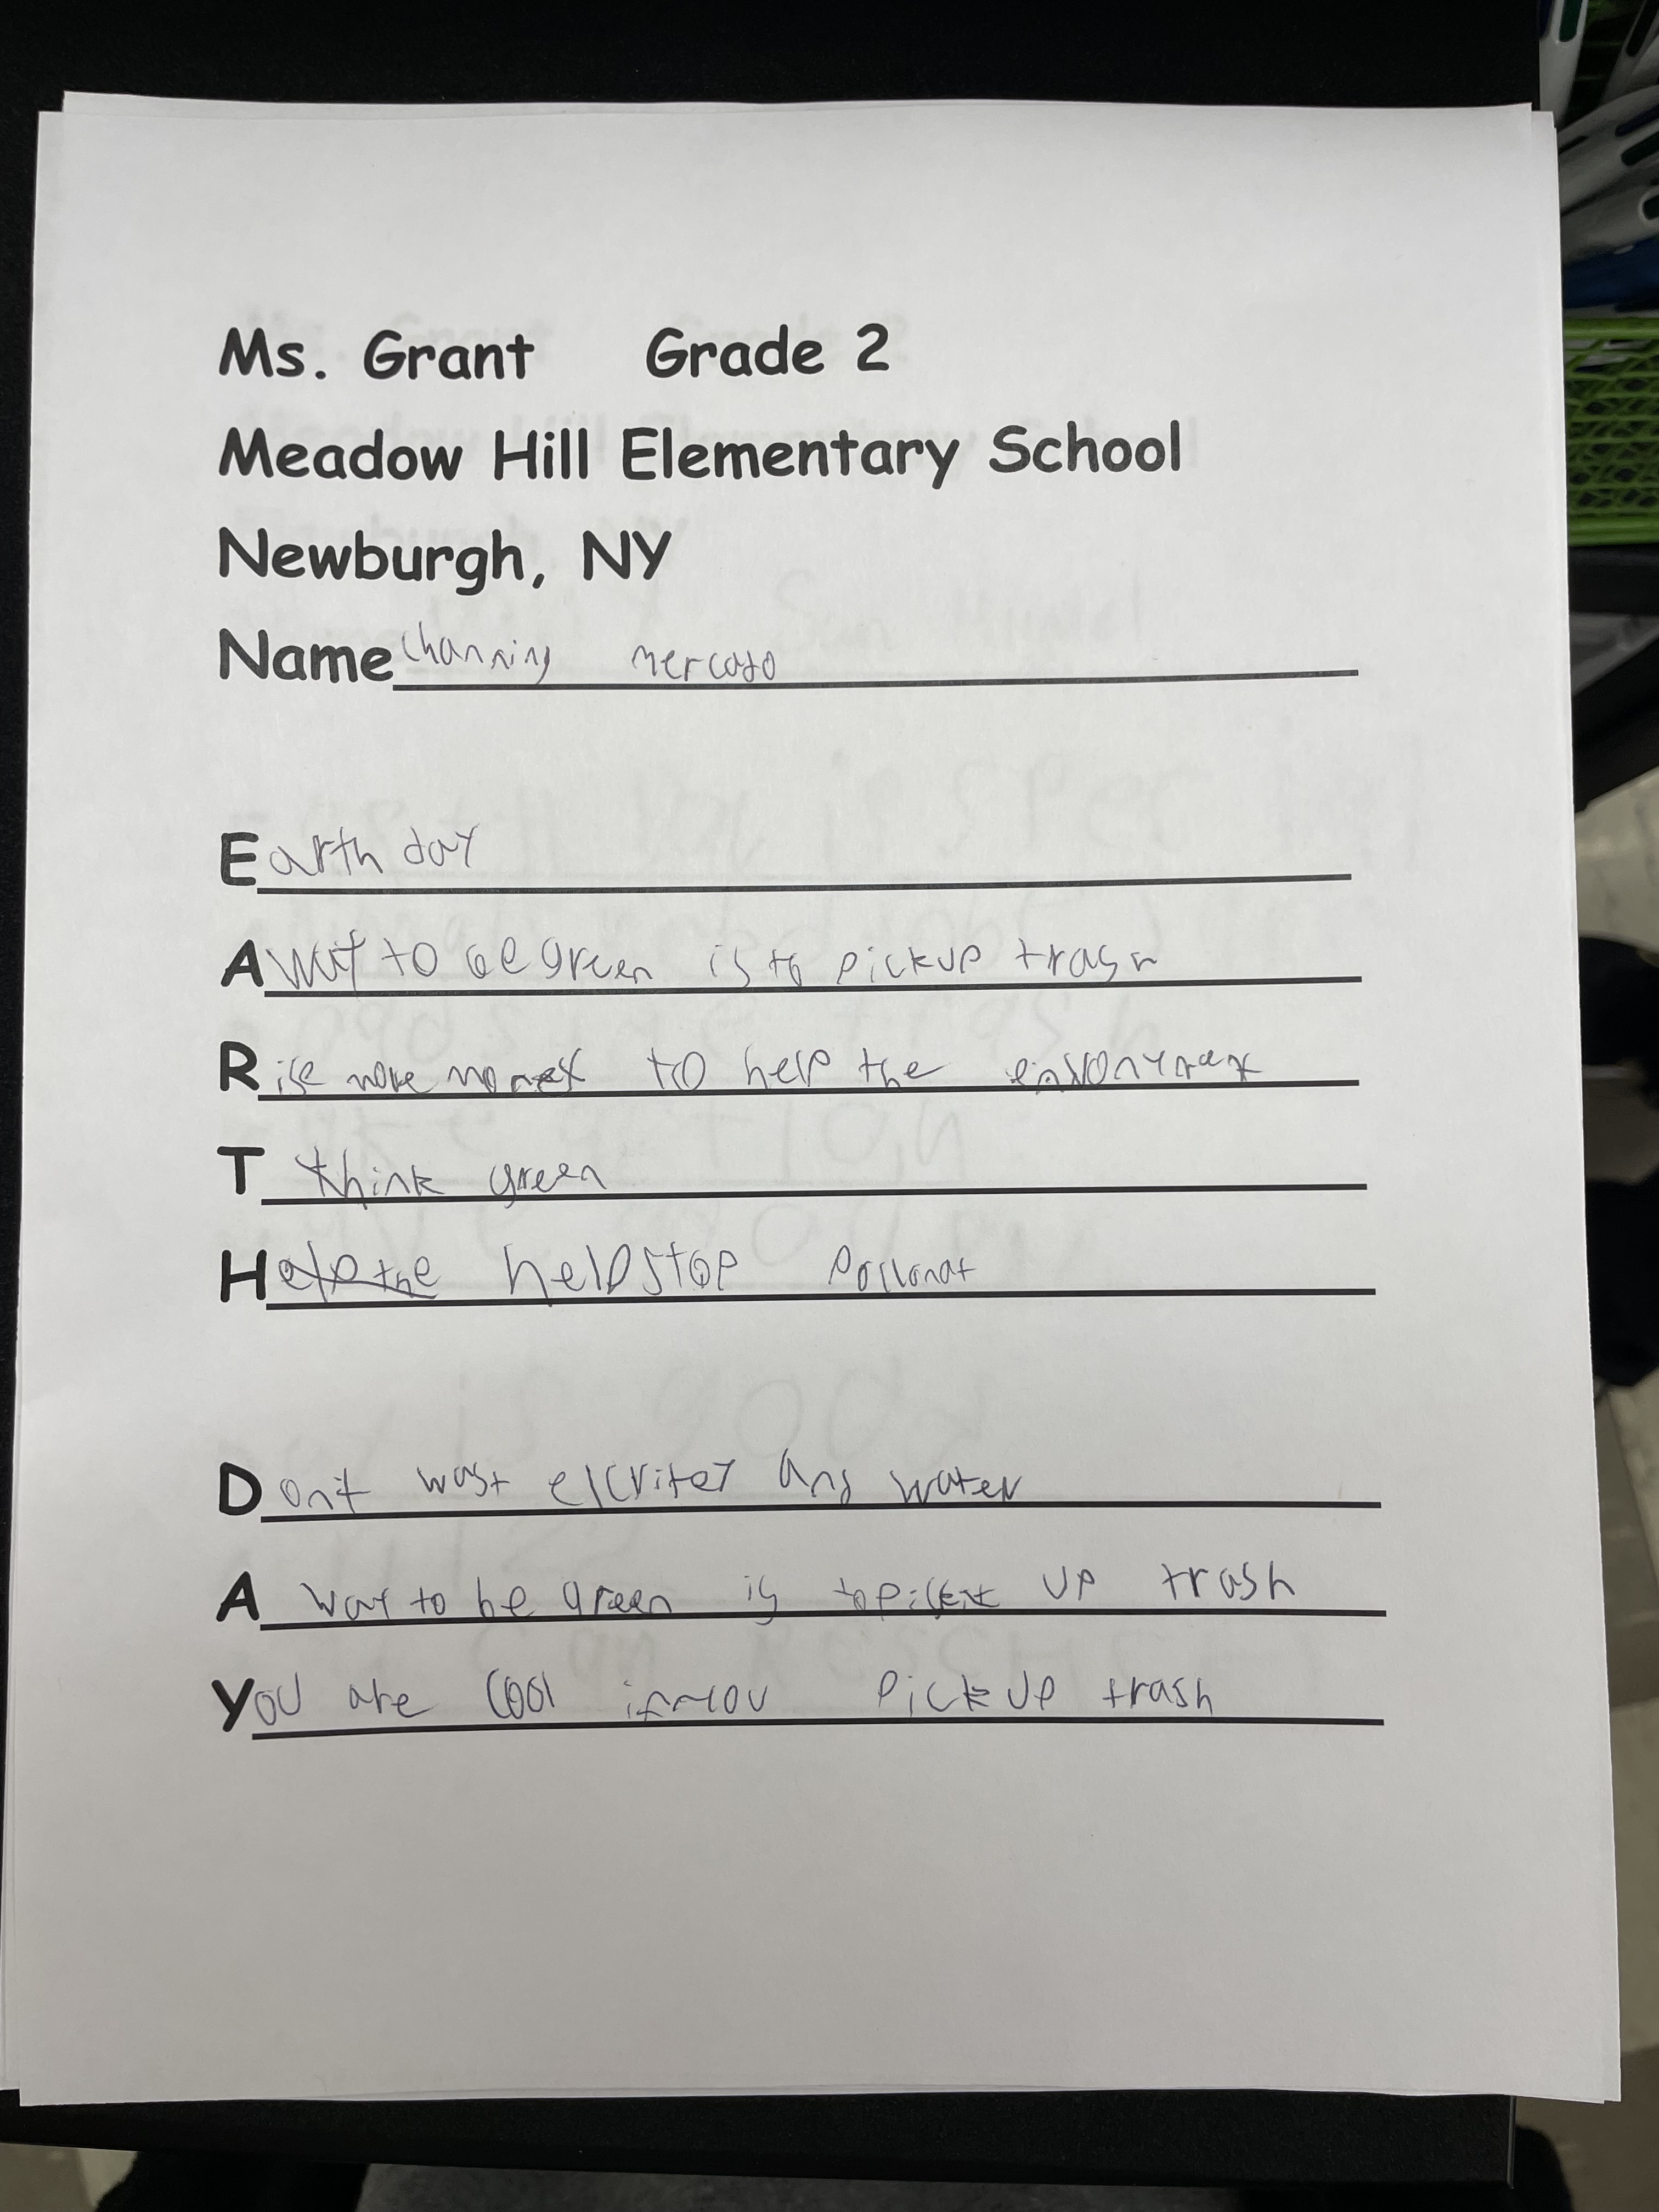 Ms. Grant Grade 2
Meadow Hill Elementary School
Newburgh, NY
Name Channing mercado
Earth day
A way to be green is to pickup trash
Rise more money to help the
T think green
H help stop
Dont wast and water
A way to be green is up trash
You are cool pick up trash